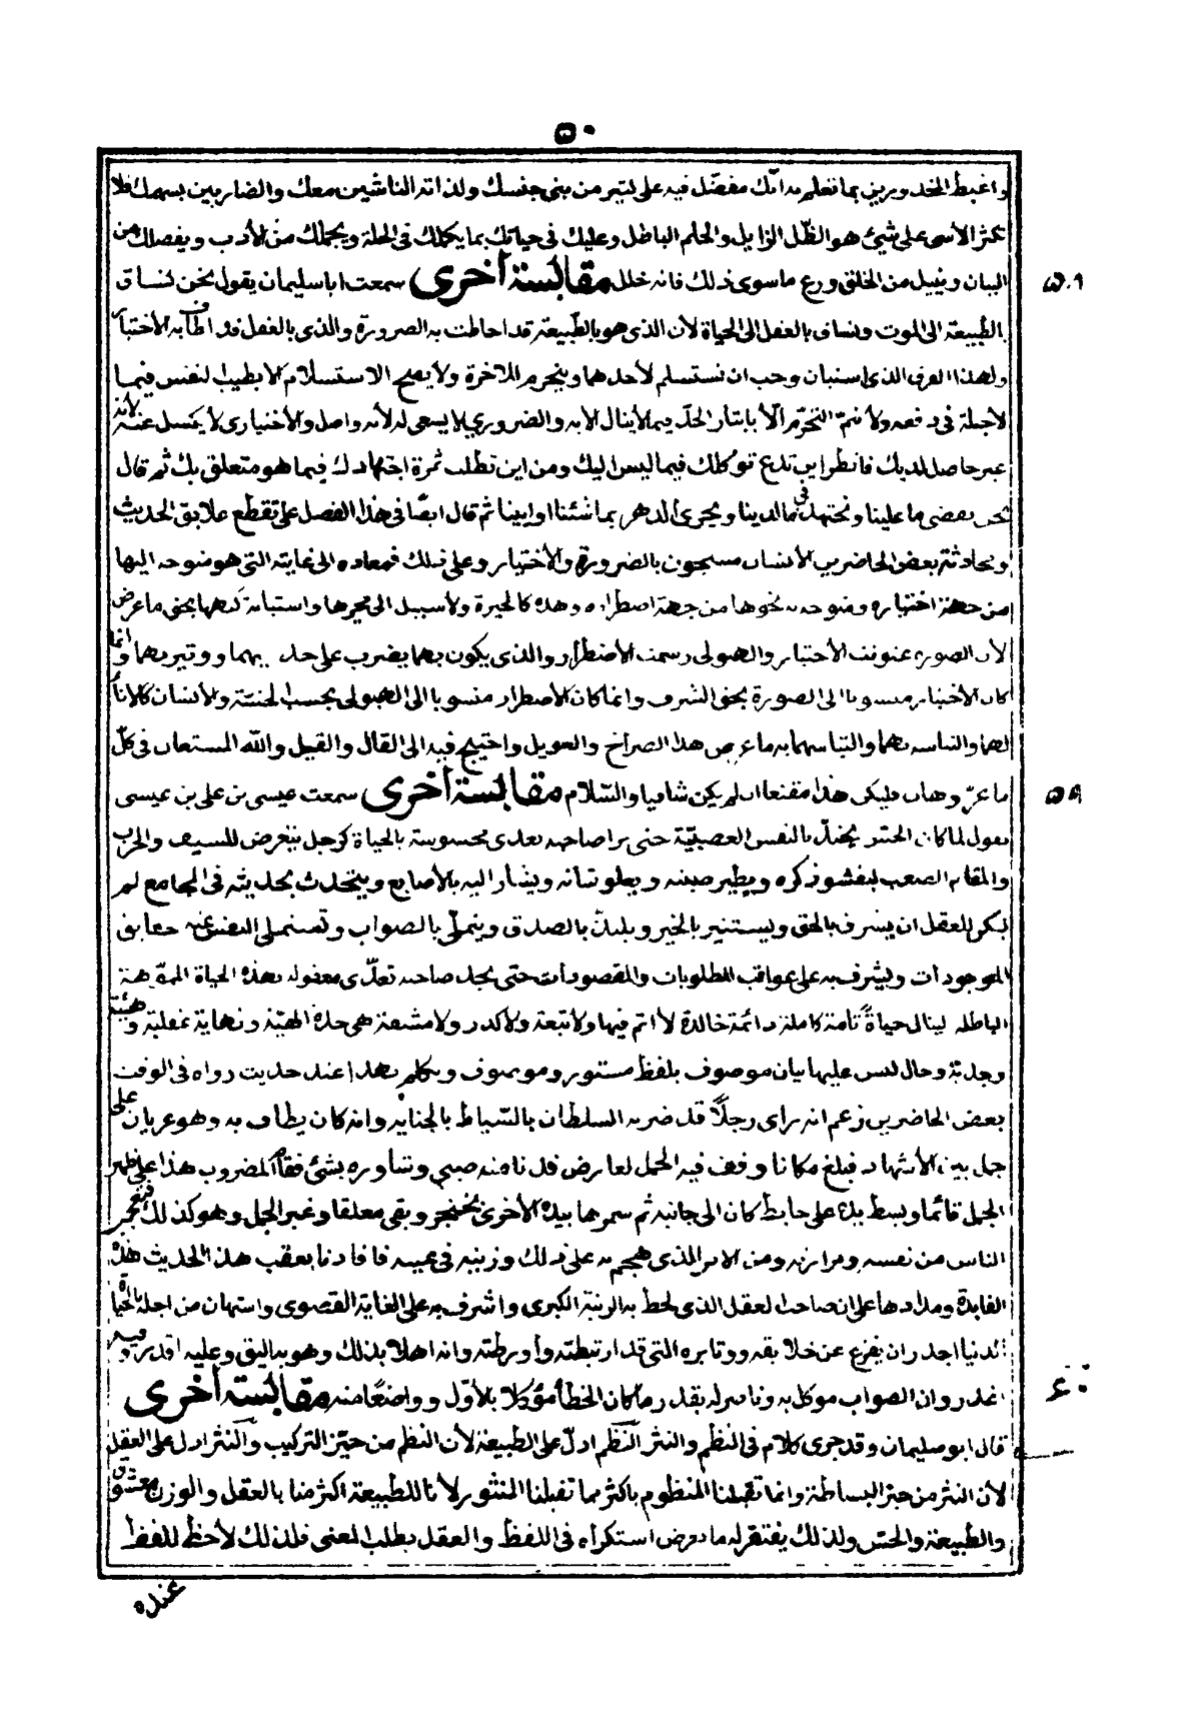 ٥٠
واغبط المخدومين بما تعلم به انك مفضل فيه على كثير من بني جنسك ولذاته الناشئين معك والضاربين بسهمك فلا
تكثر الأسى على شيئ هو الظل الزايل والحلم الباطل وعليك في حياتك بما يكملك في الحلة ويجملك من الأدب ويفصلك من
البيان ونبيل من الخلق ودع ما سوى ذلك فانه خلل مقابسة أخرى سمعت ابا سليمان يقول نحن نساق
بالطبيعة الى الموت ونساق بالعقل الى الحياة لأن الذي هو بالطبيعة قد احاطت به الضرورة والذي بالعقل قد اطاف به الأختيار
ولهذا الفرق الذي استبان وجب ان نستسلم لأحدهما ونتجرم للآخرة ولا يصح الاستسلام الا بطيب النفس فيما
لا حيلة في دفعه ولا يتم التحزم الا بايثار الجد فيما لا ينال الا به والضروري لا يسعى له لأنه واصل والأختياري لا يكسل عنه لأنه
غير حاصل لديك فانظر اين تدع توكلك فيما ليس اليك ومن اين تطلب ثمرة اجتهادك فيما هو متعلق بك ثم قال
نحن نقضي ما علينا ونجتهد في مالدينا ويجرى الدهر بما شئنا او ابينا ثم قال ايضا في هذا الفصل على تقطع علايق الحديث
ومحادثة بعض الحاضرين الأنسان مسجون بالضرورة والأختيار وعلى ذلك فمعاده الى غايته التي هو متوجه اليها
من جهة اختياره ومتوجه به نحوها من جهة اضطراره وهذه كالحيرة ولا سبيل الى محوها واستبانة كنهها بحق ما عرض
لأن الصورة عنونت الأختيار والهيولى رسمت الأضطرار والذي يكون بهما يضرب على حد بهما ووتيرتهما وانما
كان الأختيار منسوبا الى الصورة بحق الشرف وانما كان الأضطرار منسوبا الى الهيولى بحسب الخسة والأنسان كالأناء
لهما والتباسه بهما والتباسهما به ما عرض هذا الصراخ والعويل واحتيج فيه الى القال والقيل والله المستعان في كل
ما عز وهان فليكن هذا مقنعا ان لم يكن شافيا والسلام مقابسة أخرى سمعت عيسى بن علي بن عيسى
يقول لما كان الحس يخدل بالنفس العصبية حتى يرا صاحبه تعدى محسوسة بالحياة كرجل يتعرض للسيف والحرب
والمقام الصعب ليفشو ذكره ويطير صيته ويعلو شانه ويشار اليه بالأصابع ويتحدث بحديثه في المجامع لم
يكن للعقل ان يشرف بالحق ويستنير بالخير ويلتذ بالصدق ويتملى بالصواب وتستملى النفس عنه حقايق
الموجودات ويشرف به على عواقب المطلوبات والمقصودات حتى يجل صاحبه تعدى معقوله بهذه الحياة المموهة
الباطلة لينال حياة تامة كاملة دائمة خالدة لا اثم فيها ولا تبعة ولا كدر ولا مشقة هي حدة الهية ونهاية عقلية وهيئة
وجدية وحال ليس عليها بيان موصوف بلفظ مستور ومرصوف ويكلم بهذا عند حديث رواه في الوقت
بعض الحاضرين زعم انه رأى رجلا قد ضربه السلطان بالسياط بالجناية وانه كان يطاف به وهو عريان على
جمل بين الأشهاد فبلغ مكانا وقف فيه الجمل لعارض فدنا منه صبي وشاوره بشئ فقام المضروب هذا على ظهر
الجمل قائما وبسط يده على حايط كان الى جانبه ثم سمرها بيده الأخرى بخنجر وبقى معلقا وعبر الجمل وهو كذلك فتعجب
الناس من نفسه ومرازنه ومن الامر الذي هجم به على ذلك وزينه في عينه فافادنا بعقب هذا الحديث هذه
الفايدة ومدادها على ان صاحب العقل الذي لحظ به الرتبة الكبرى واشرف به على الغاية القصوى واستهان من اجله بالحياة
الدنيا اجدر ان يفزع عن خلايقه ووتايره التي قد ارتبطته وأورطته وانه اهلا بذلك وهو به اليق وعليه اقدر وفيه
اغدر وان الصواب موكل به وناصر له بقدر ما كان الخطأ موكلا بالأول وواضعا منه مقابسة أخرى
قال ابو سليمان وقد جرى كلام في النظم والنثر النظم ادل على الطبيعة لأن النظم من حيز التركيب والنثر ادل على العقل
لأن النثر من حيز البساطة وانما تقبلنا المنظوم باكثر مما تقبلنا المنثور لأنا للطبيعة اكثر منا بالعقل والوزن معشوق
والطبيعة والحس ولذلك يفتقر له ما يعرض استكراه في اللفظ والعقل يطلب المعنى فلذلك لاحظ للفظ
عنده
٥٨
٥٩
٦٠